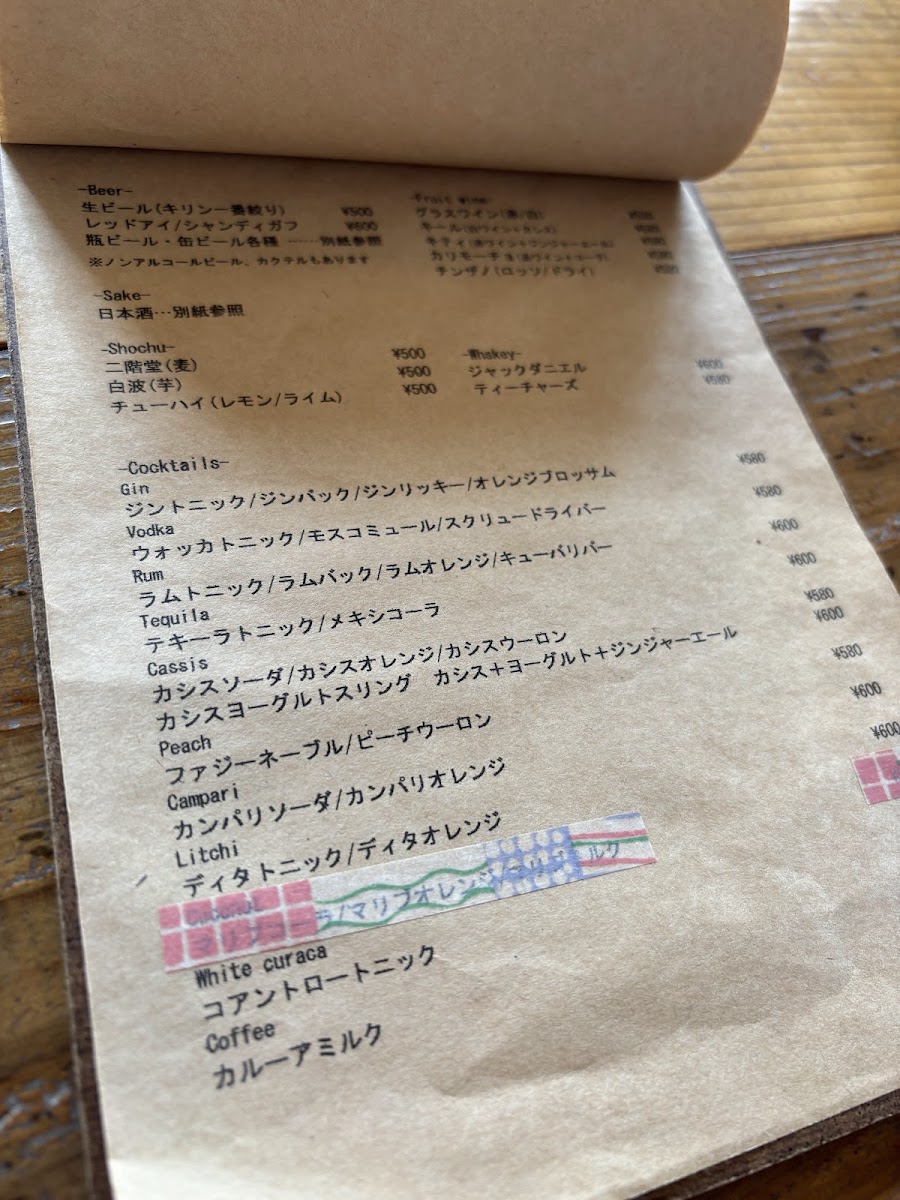 -Beer-
生ビール(キリン一番絞り) ¥500
レッドアイ/シャンディガフ ¥600
瓶ビール・缶ビール各種 ……別紙参照
※ノンアルコールビール、カクテルもあります
-Fruit wine-
グラスワイン(赤/白)
キール(白ワイン+カシス)
キティ(赤ワイン+ジンジャーエール)
カリモーチョ(赤ワイン+コーラ)
チンザノ(ロッソ/ドライ)
-Sake-
日本酒…別紙参照
-Shochu-
二階堂(麦) ¥500
白波(芋) ¥500
チューハイ(レモン/ライム) ¥500
-Whskey-
ジャックダニエル ¥600
ティーチャーズ ¥580
-Cocktails-
Gin
ジントニック/ジンバック/ジンリッキー/オレンジブロッサム ¥580
Vodka
ウォッカトニック/モスコミュール/スクリュードライバー ¥580
Rum
ラムトニック/ラムバック/ラムオレンジ/キューバリバー ¥600
Tequila
テキーラトニック/メキシコーラ ¥600
Cassis
カシスソーダ/カシスオレンジ/カシスウーロン ¥580
カシスヨーグルトスリング カシス+ヨーグルト+ジンジャーエール ¥600
Peach
ファジーネーブル/ピーチウーロン ¥580
Campari
カンパリソーダ/カンパリオレンジ ¥600
Litchi
ディタトニック/ディタオレンジ ¥600
Coconut
マリブコーラ/マリブオレンジ/マリブミルク
White curaca
コアントロートニック
Coffee
カルーアミルク